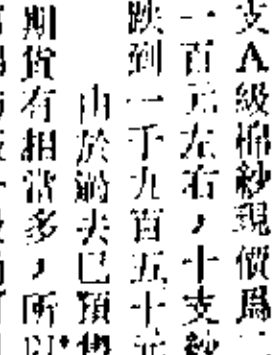 支A級棉紗現價爲一
一百元左右，十支紗
跌到一千九百五十元
由於過去已預售
期貨有相當多，所以